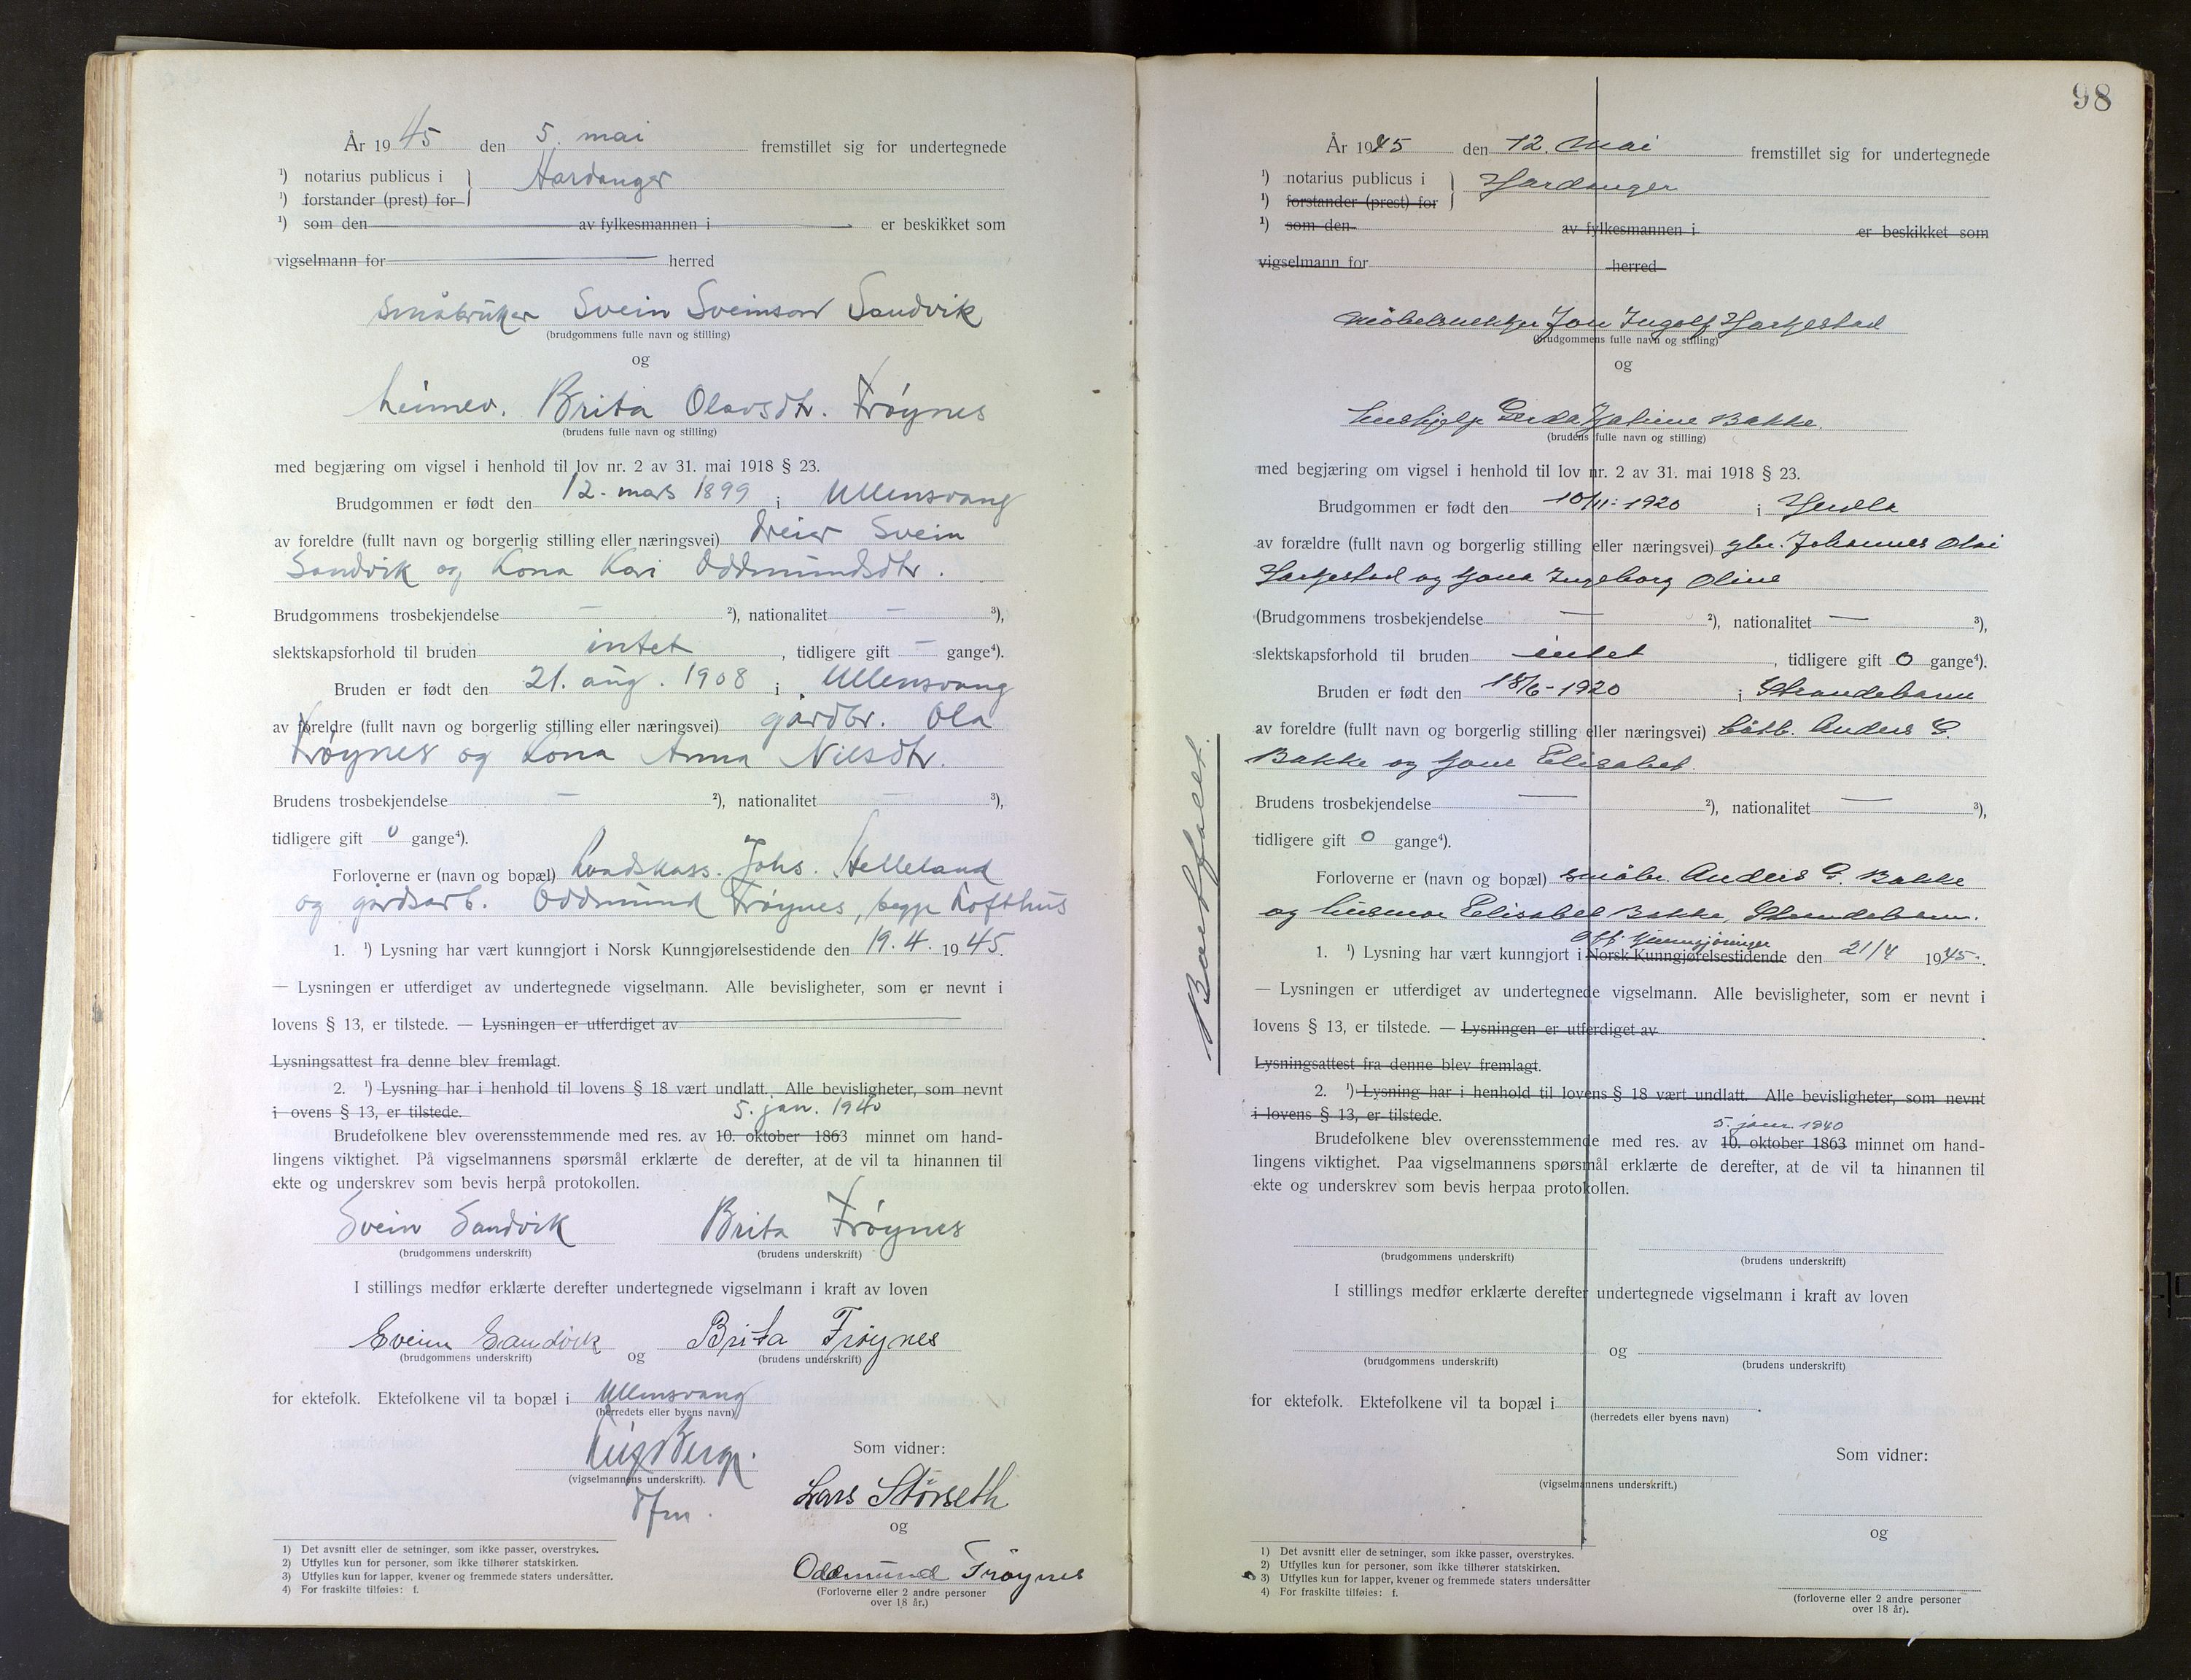 År 1945 den 5. mai fremstillet sig for undertegnede
¹) notarius publicus i } Hardanger
¹) forstander (prest) for
¹) som den av fylkesmannen i er beskikket som
vigselmann for herred
småbruker Svein Sveinson Sandvik
(brudgommens fulle navn og stilling)
og
heimev. Brita Olavsdtr. Frøynes
(brudens fulle navn og stilling)
med begjæring om vigsel i henhold til lov nr. 2 av 31. mai 1918 § 23.
Brudgommen er født den 12. mars 1899 i Ullensvang
av foreldre (fullt navn og borgerlig stilling eller næringsvei) dreier Svein
Sandvik og kona Kari Oddmundsdtr.
Brudgommens trosbekjendelse — ²), nationalitet — ³),
slektskapsforhold til bruden intet, tidligere gift — gange⁴).
Bruden er født den 21. aug. 1908 i Ullensvang
av foreldre (fullt navn og borgerlig stilling eller næringsvei) gårdbr. Ola
Frøynes og kona Anna Nilsdtr.
Brudens trosbekjendelse — ²), nationalitet — ³),
tidligere gift 0 gange⁴).
Forloverne er (navn og bopæl) landskass. Johs. Helleland
og gårdsarb. Oddmund Frøynes, begge Lofthus
1. ¹) Lysning har vært kunngjort i Norsk Kunngjørelsestidende den 19.4. 1945.
— Lysningen er utferdiget av undertegnede vigselmann. Alle bevisligheter, som er nevnt i
lovens § 13, er tilstede. — Lysningen er utferdiget av
Lysningsattest fra denne blev fremlagt.
2. ¹) Lysning har i henhold til lovens § 18 vært undlatt. Alle bevisligheter, som nevnt
i ovens § 13, er tilstede.
5. jan. 1940
Brudefolkene blev overensstemmende med res. av 10. oktober 1863 minnet om hand-
lingens viktighet. På vigselmannens spørsmål erklærte de derefter, at de vil ta hinannen til
ekte og underskrev som bevis herpå protokollen.
Svein Sandvik Brita Frøynes
(brudgommens underskrift) (brudens underskrift)
I stillings medfør erklærte derefter undertegnede vigselmann i kraft av loven
Svein Sandvik og Brita Frøynes
(brudgommens underskrift) (brudens underskrift)
for ektefolk. Ektefolkene vil ta bopæl i Ullensvang
(herredets eller byens navn)
Berge.
(vigselmannens underskrift).
Som vidner:
Lars Störseth
og
Oddmund Frøynes
(Forloverne eller 2 andre personer
over 18 år.)
1) Det avsnitt eller de setninger, som ikke passer, overstrykes.
2) Utfylles kun for personer, som ikke tilhører statskirken.
3) Utfylles kun for lapper, kvener og fremmede staters undersåtter.
4) For fraskilte tilføies: f.
98
Bortfallet.
År 1945 den 12. Mai fremstillet sig for undertegnede
¹) notarius publicus i } Hardanger
¹) forstander (prest) for
¹) som den av fylkesmannen i er beskikket som
vigselmann for herred
møbelsnekker Jon Ingolf Hartvestad
(brudgommens fulle navn og stilling)
og
hushjelp Gerda Katrine Bakke.
(brudens fulle navn og stilling)
med begjæring om vigsel i henhold til lov nr. 2 av 31. mai 1918 § 23.
Brudgommen er født den 10/11-1920 i Herdla
av forældre (fullt navn og borgerlig stilling eller næringsvei) gbr. Johannes Olai
og kona Ingeborg Oline
(Brudgommens trosbekjendelse — ²), nationalitet — ³),
slektskapsforhold til bruden intet, tidligere gift 0 gange⁴).
Bruden er født den 18/6-1920 i Strandebarm
av foreldre (fullt navn og borgerlig stilling eller næringsvei) båtb. Anders G.
Bakke og kone Elisabet.
Brudens trosbekjendelse — ²), nationalitet — ³),
tidligere gift 0 gange⁴).
Forloverne er (navn og bopæl) småbr. Anders G. Bakke
og husmor Elisabet Bakke, Strandebarm.
off. kunngjøringer
1. ¹) Lysning har vært kunngjort i Norsk Kunngjørelsestidende den 21/4 1945.
— Lysningen er utferdiget av undertegnede vigselmann. Alle bevisligheter, som er nevnt i
lovens § 13, er tilstede. — Lysningen er utferdiget av
Lysningsattest fra denne blev fremlagt.
2. ¹) Lysning har i henhold til lovens § 18 vært undlatt. Alle bevisligheter, som nevnt
i lovens § 13, er tilstede.
5. jan. 1940
Brudefolkene blev overensstemmende med res. av 10. oktober 1863 minnet om hand-
lingens viktighet. Paa vigselmannens spørsmål erklærte de derefter, at de vil ta hinannen til
ekte og underskrev som bevis herpaa protokollen.
(brudgommens underskrift) (brudens underskrift)
I stillings medfør erklærte derefter undertegnede vigselmann i kraft av loven
og
(brudgommens underskrift) (brudens underskrift)
for ektefolk. Ektefolkene vil ta bopæl i
(herredets eller byens navn)
Som vidner:
(vigselmannens underskrift.)
og
(forloverne eller 2 andre personer
over 18 år).
1) Det avsnitt eller de setninger, som ikke passer, overstrykes.
2) Utfylles kun for personer, som ikke tilhører statskirken.
3) Utfylles kun for lapper, kvener og fremmede staters undersåtter
4) For fraskilte tilføies: f.